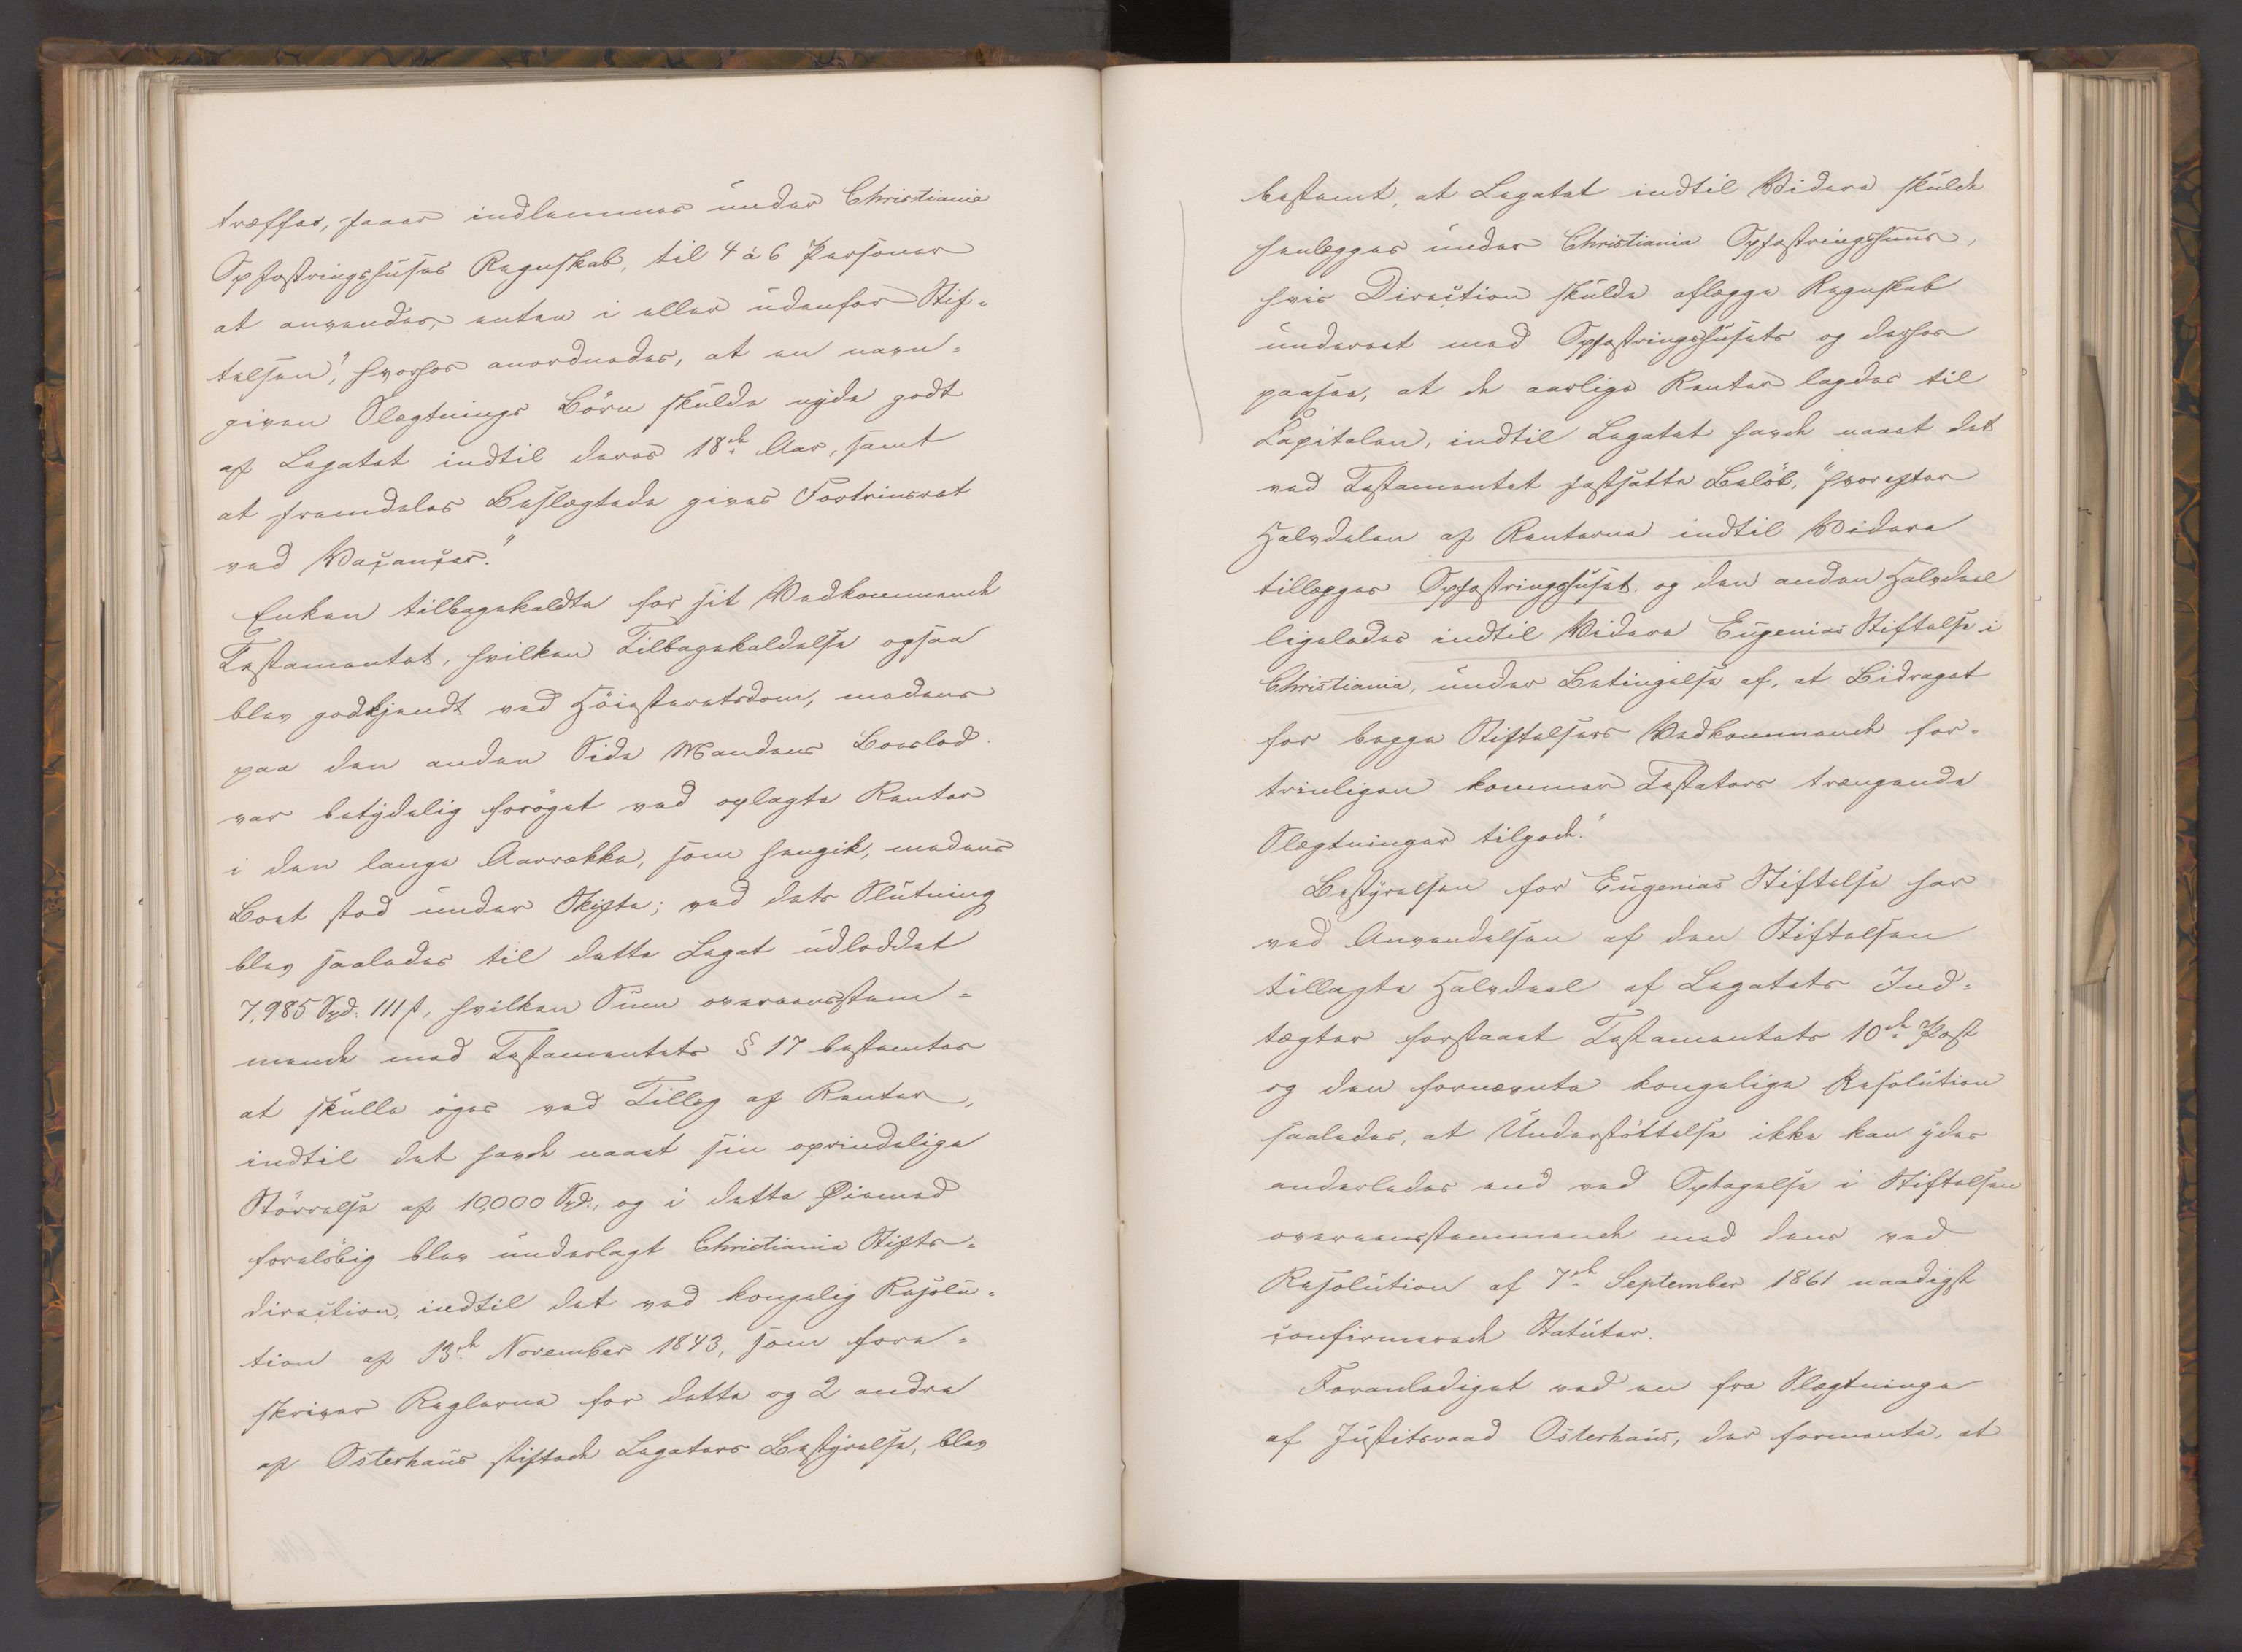 træffes, saaer indlemmes under Christiania
Opfostringshuses Regnskab, til 4 à 6 Personer
at anvendes, enten i eller udenfor Stif-
telsen", hvorhos anordnedes, at en navn-
given Slægtnings Börn skulde nyde godt
af Legatet indtil deres 18de Aar, samt
at fremdeles Beslægtede gives Fortrinsret
ved Vacancer."
Enken tilbagekaldte for sit Vedkommende
Testamentet, hvilken Tilbagekaldelse ogsaa
blev godkjendt ved Höiesteretsdom, medens
paa den anden Side Mandens Boeslod
var betydelig foröget ved oplagte Renter
i den lange Aarrække, som hengik, medens
Boet stod under Skifte; ved dets Slutning
blev saaledes til dette Legat udloddet
7,985 Spd. 111 ß, hvilken Sum overeensstem-
mende med Testamentets § 17 bestemtes
at skulle öges ved Tillæg af Renter,
indtil det havde naaet sin oprindelige
Störrelse af 10,000 Spd., og i dette Øiemed
forelöbig blev underlagt Christiania Stifts-
direction, indtil det ved kongelig Resolu-
tion af 13de November 1843, som fore-
skriver Reglerne for dette og 2 andre
af Osterhaus stiftede Legaters Bestyrelse, blev
bestemt, at Legatet indtil Videre skulde
henlægges under Christiania Opfostringshuus,
hvis Direction skulde aflægge Regnskab
undereet med Opfostringshusets og derhos
paasee, at de aarlige Renter lagdes til
Capitalen, indtil Legatet havde naaet det
ved Testamentet fastsatte Belöb, "hvorefter
Halvdelen af Renterne indtil Videre
tillægges Opfostringshuset og den anden Halvdeel
ligeledes indtil Videre Eugenias Stiftelse i
Christiania, under Betingelse af, at Bidraget
for begge Stiftelsers Vedkommende for-
trinligen kommer Testators trængende
Slægtninger tilgode."
Bestyrelsen for Eugenias Stiftelse har
ved Anvendelsen af den Stiftelsen
tillagte Halvdeel af Legatets Ind-
tægter forstaaet Testamentets 10de Post
og den fornævnte kongelige Resolution
saaledes, at Understöttelse ikke kan ydes
anderledes end ved Optagelse i Stiftelsen
overeensstemmende med dens ved
Resolution af 7de September 1861 naadigst
confirmerede Statuter.
Foranlediget ved en fra Slægtninge
af Justitsraad Osterhaus, der formente, at